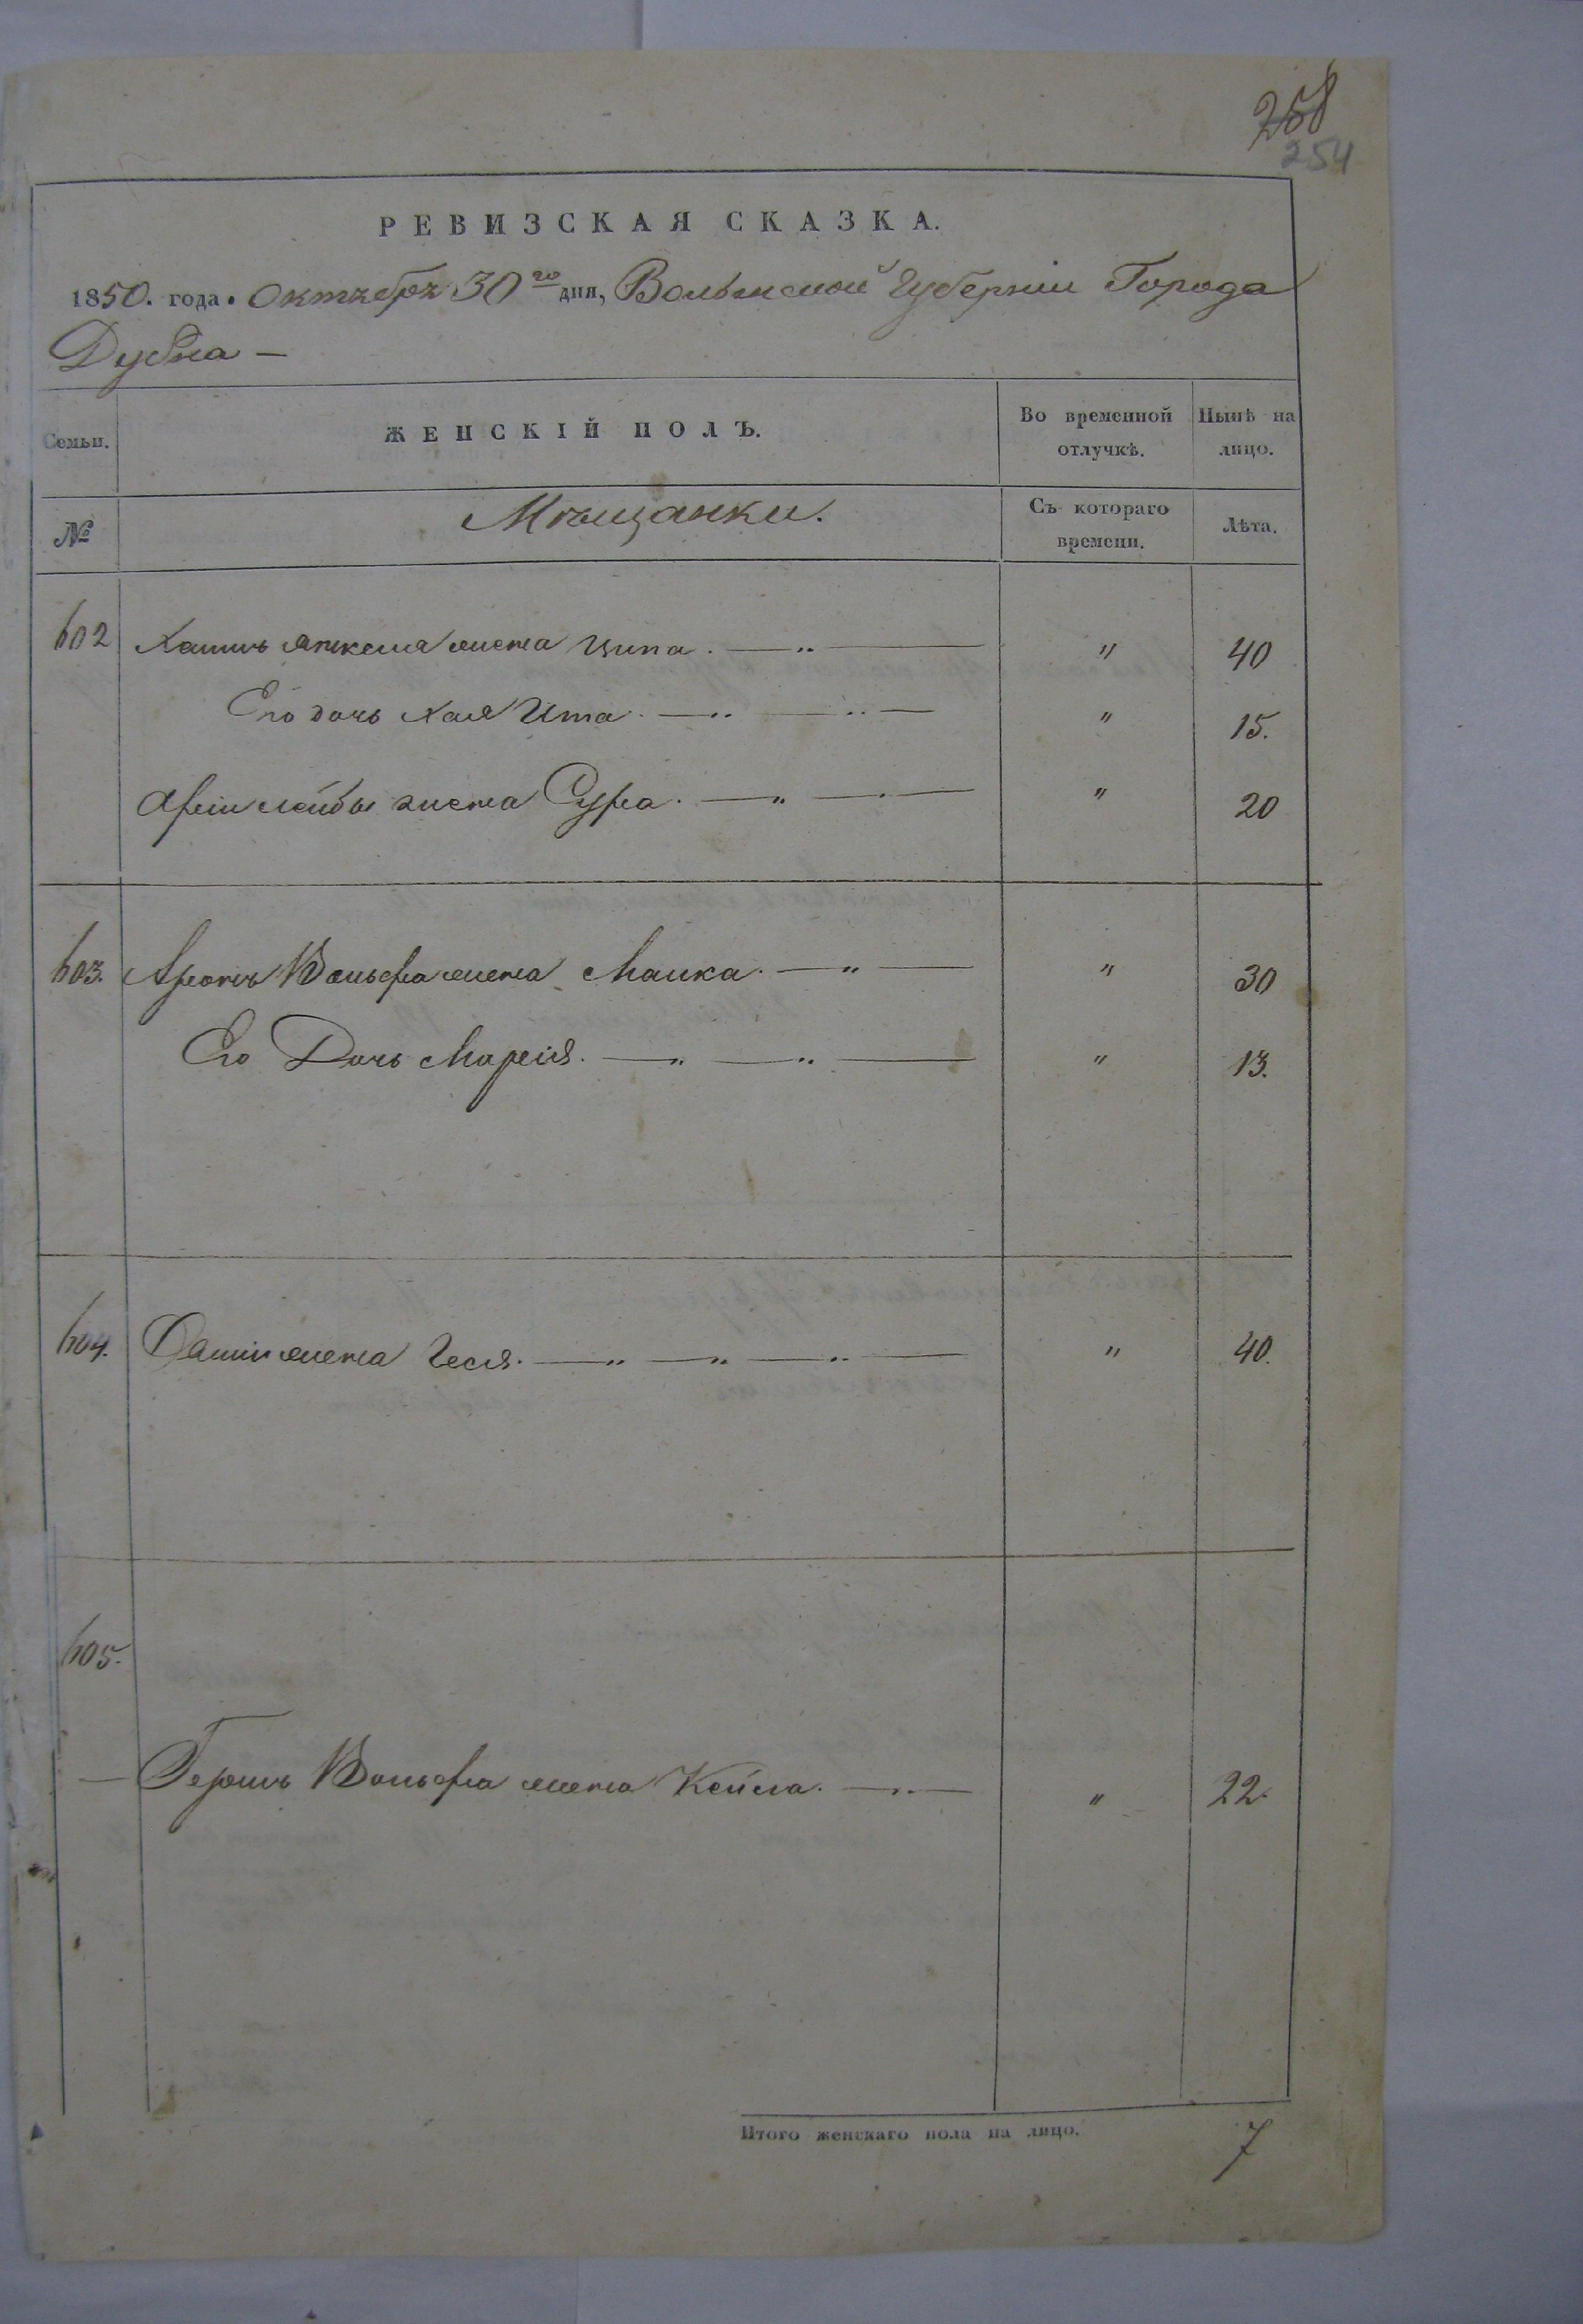 258
254
РЕВИЗСКАЯ СКАЗКА.
1850. года. Октября 30го дня, Волынской Губерніи Города
Дубна —
Семьи. ЖЕНСКІЙ ПОЛЪ. Во временной отлучкѣ. Нынѣ на лицо.
№ Мѣщанки. Съ котораго времени. Лѣта.
602 жена Ципа. — „ — " 40
Его дочь Хая Ита. — „ — „ — " 15.
лейбы жена Сура. — „ — " 20
603. Аронъ Вольфа жена Малка. — „ — " 30
Его Дочь — „ — „ — " 13.
604. жена Геся. — „ — „ — „ — " 40.
605.
— Гершъ Вольфа жена Кейла. — „ — " 22.
Итого женскаго пола на лицо. 7